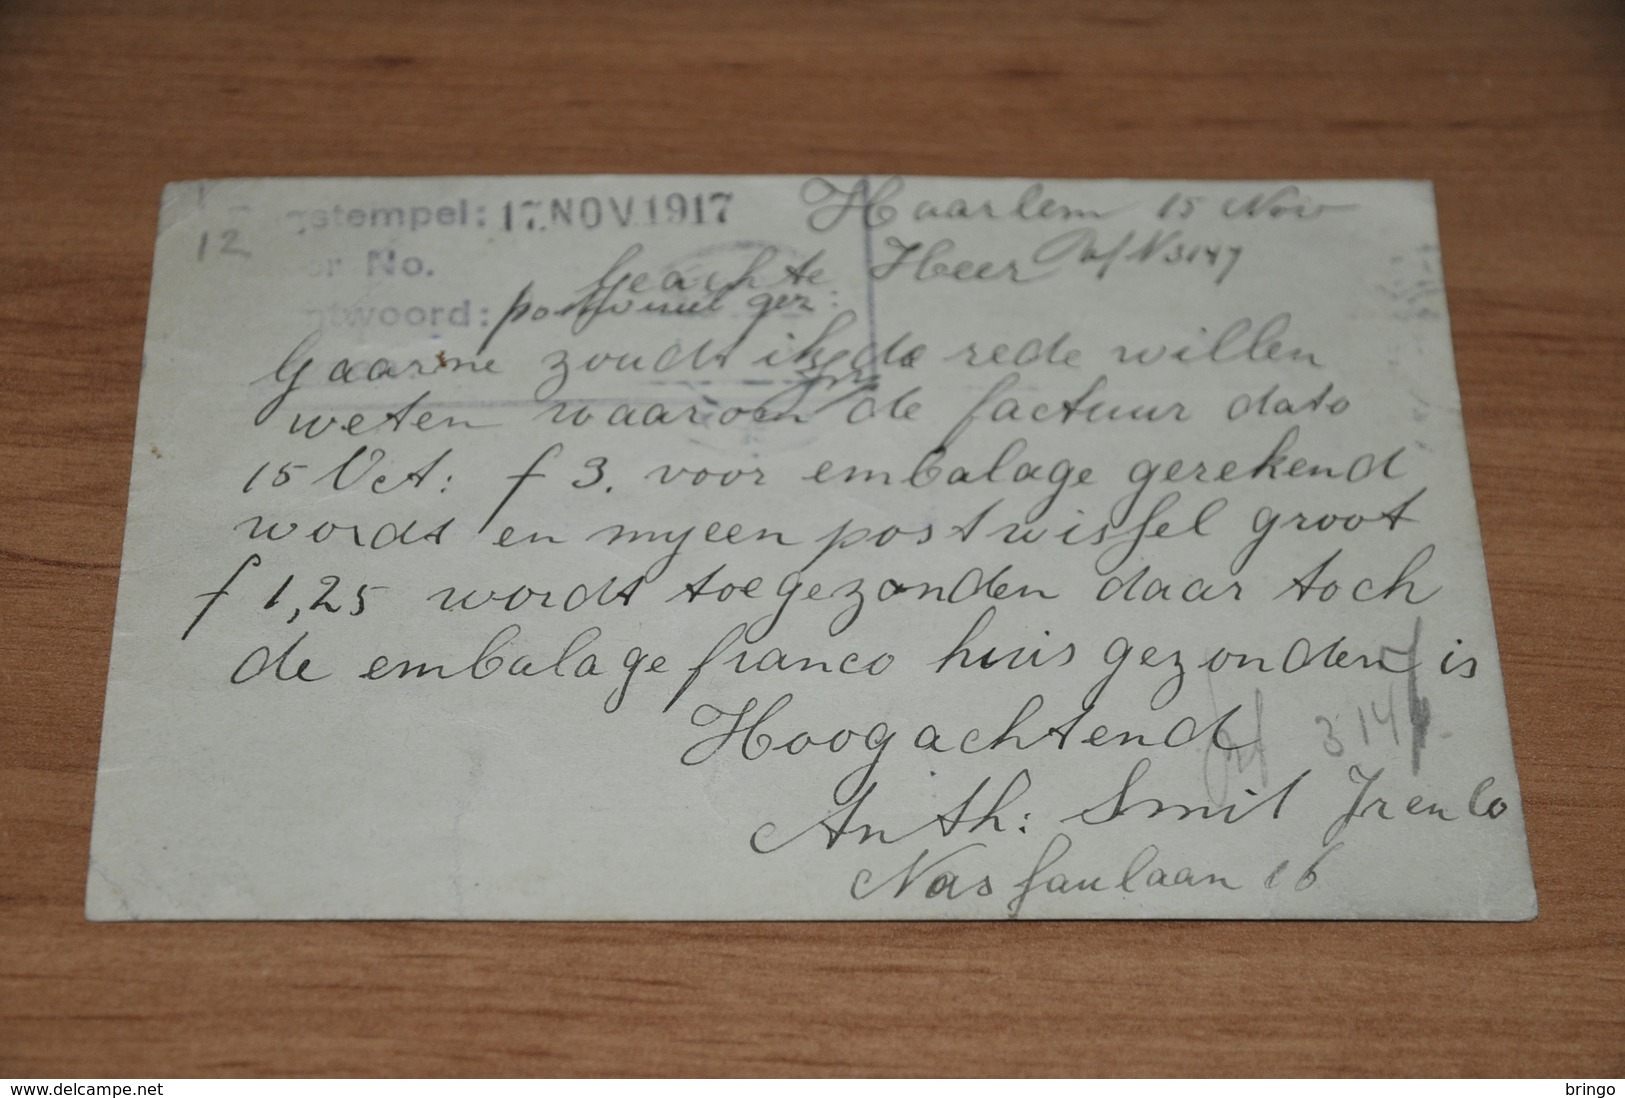 gstempel: 17.NOV.1917 Haarlem 15 Nov
12
No. Geachte Heer N 3147
ntwoord: gez:
Gaarne zoudt ik de rede willen
weten waarom de factuur dato
15 Oct: f 3. voor embalage gerekend
wordt en my een postwissel groot
f 1,25 wordt toegezonden daar toch
de embalage franco huis gezonden is
Hoogachtend 314
Anth: Smit
Nassaulaan 16
delcampe.net bringo